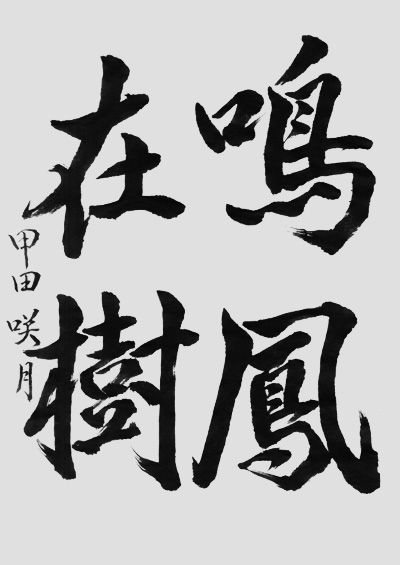 鳴鳳
在樹
甲田咲月